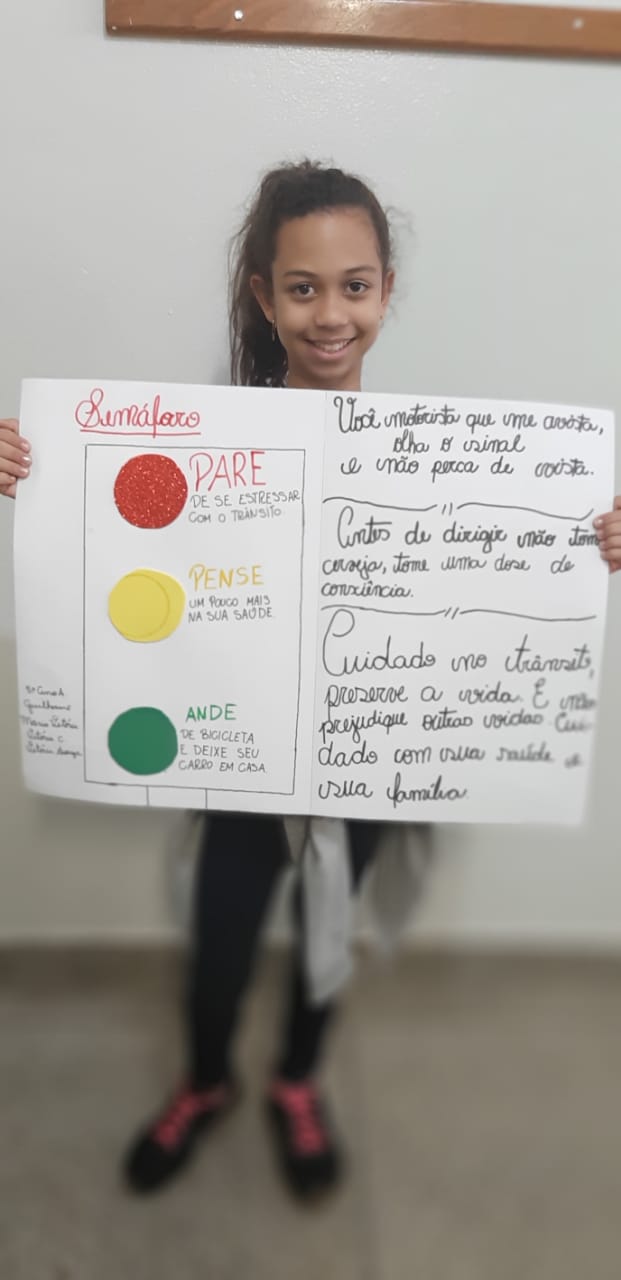 Semáforo
PARE
DE SE ESTRESSAR
COM O TRÂNSITO.
PENSE
UM POUCO MAIS
NA SUA SAÚDE.
ANDE
DE BICICLETA
E DEIXE SEU
CARRO EM CASA.
5º Ano A
Guilherme
Maria Vitória
Vitória C.
Vitória
Você motorista que me avista,
olha o sinal
e não perca de vista.
Antes de dirigir não tome
cerveja, tome uma dose de
consciência.
Cuidado no trânsito,
preserve a vida. E não
prejudique outras vidas. Cui-
dado com sua saúde e
sua família.